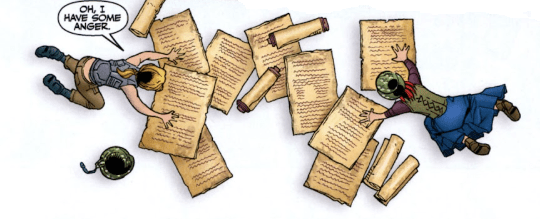 OH, I
HAVE SOME
ANGER.